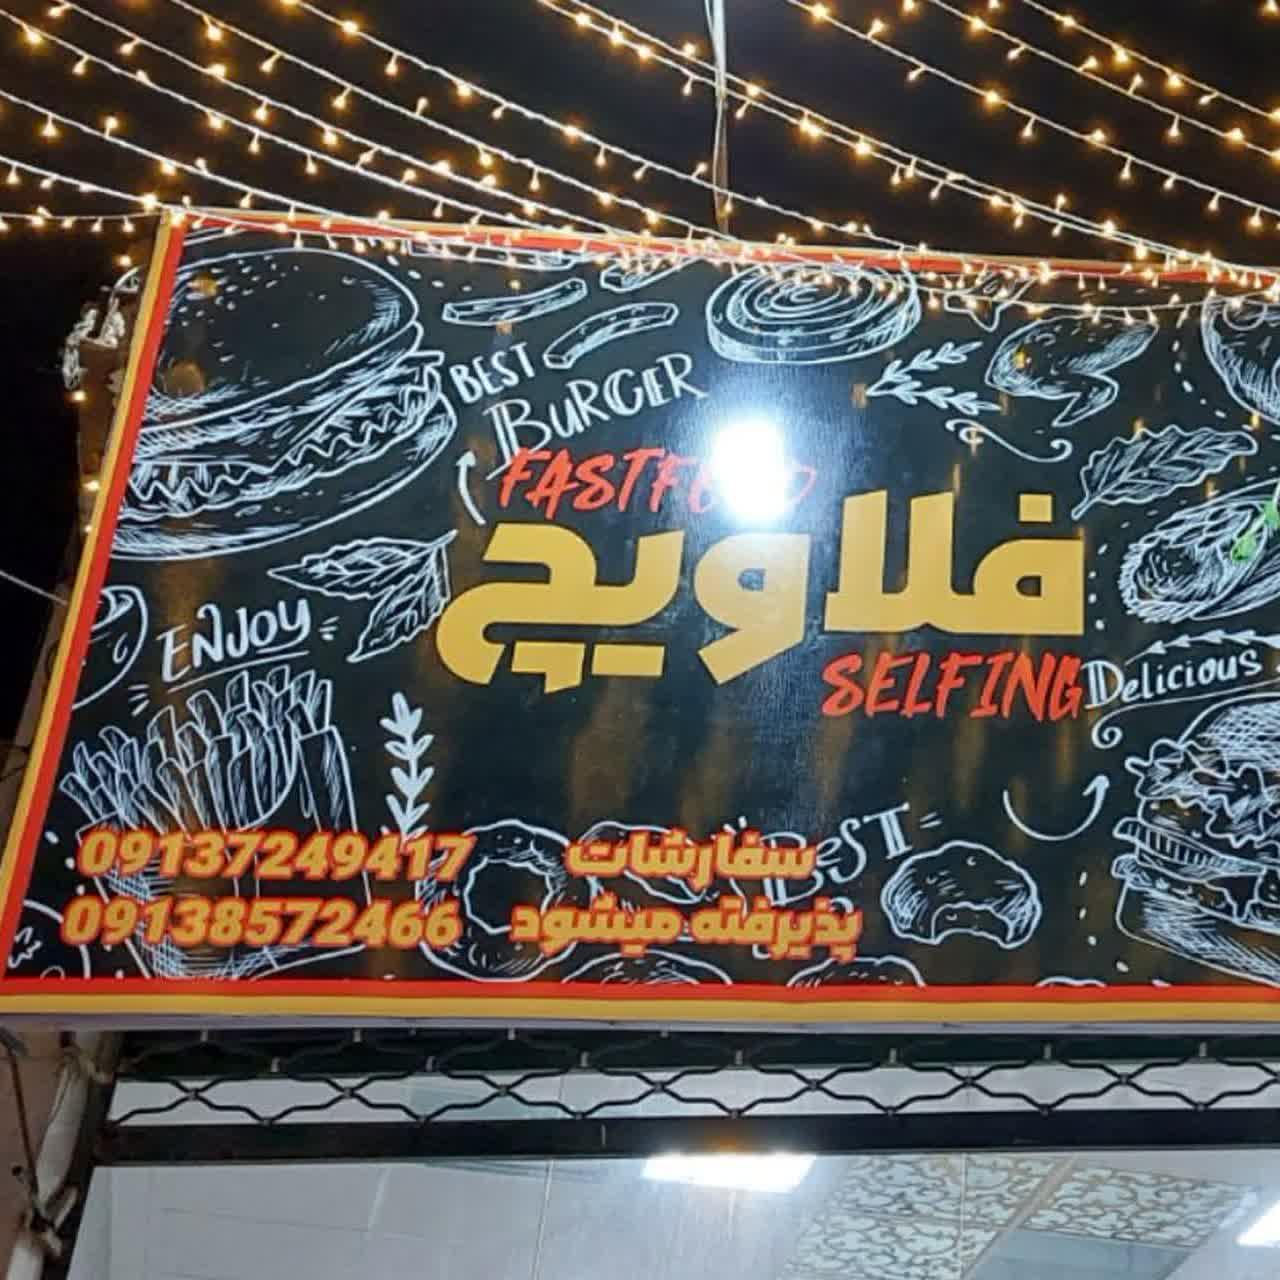 BEST
BURGER
FASTFOOD
فلاویچ
SELFING
Delicious
ENJOY
BEST
سفارشات
پذیرفته میشود
09137249417
09138572466